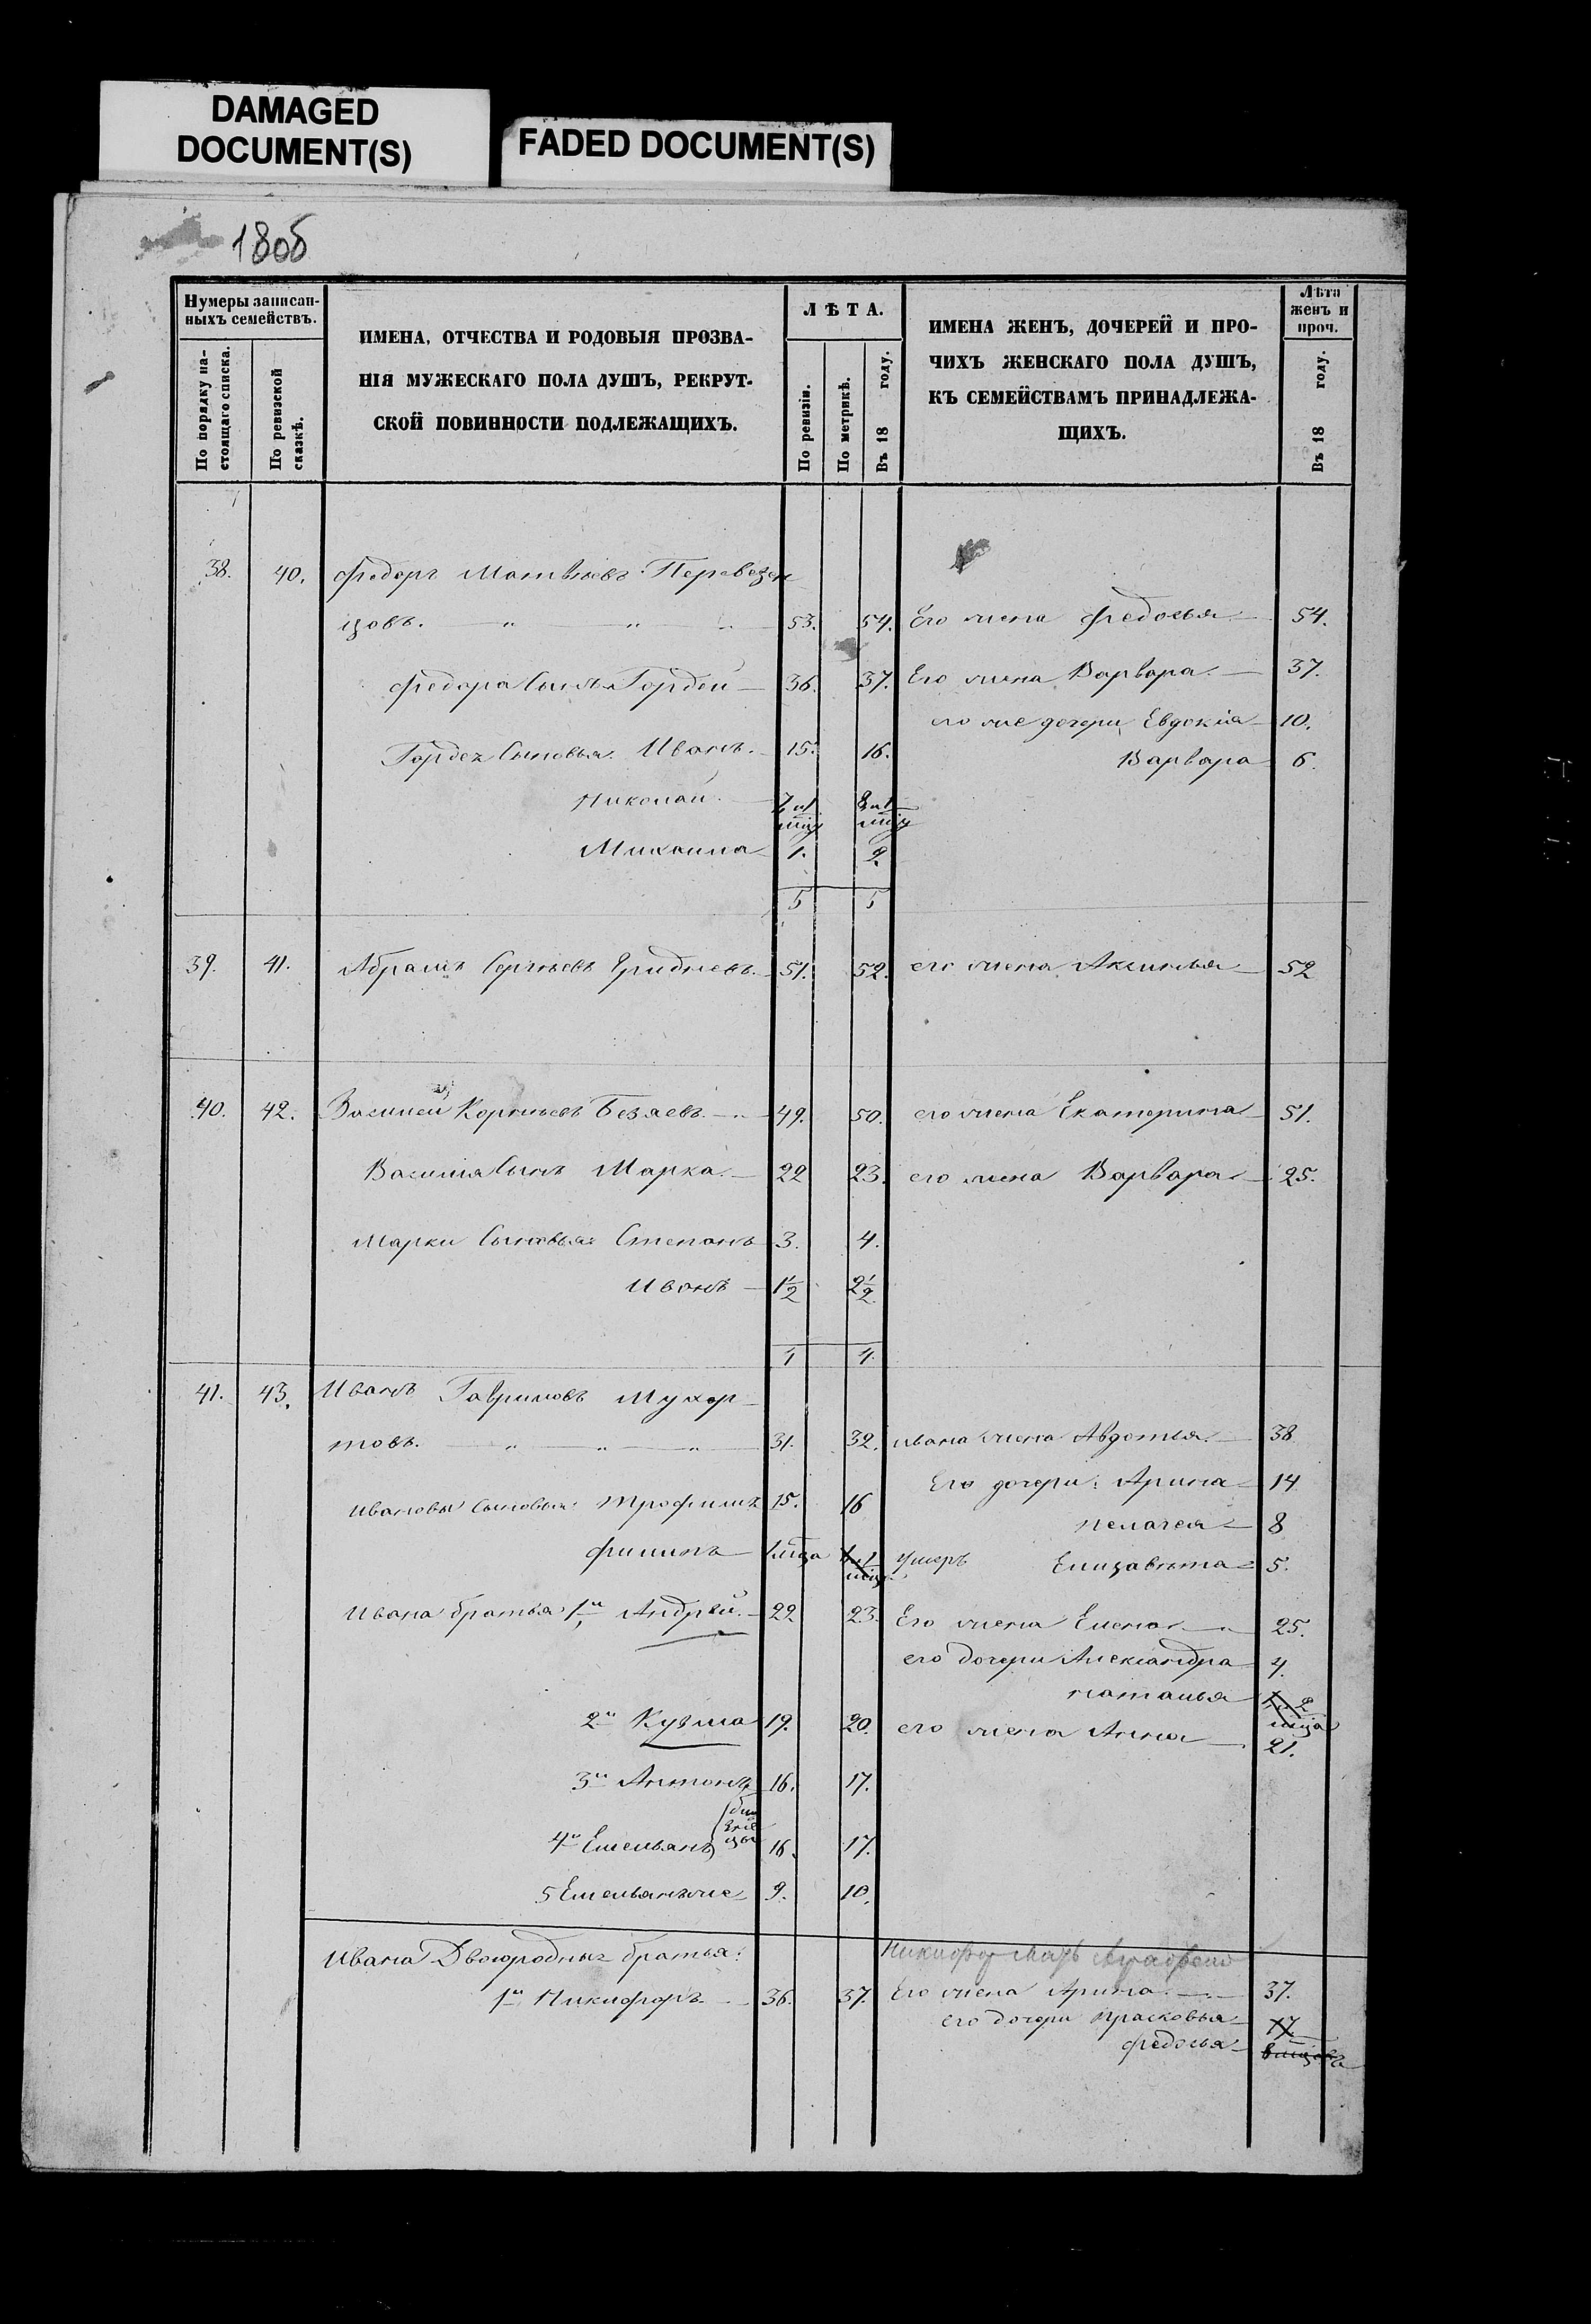 DAMAGED
DOCUMENT(S)
FADED DOCUMENT(S)
180б
Нумеры записан-
ныхъ семействъ.
По порядку на-
стоящаго списка.
По ревизской
сказкѣ.
ИМЕНА, ОТЧЕСТВА И РОДОВЫЯ ПРОЗВА-
НІЯ МУЖЕСКАГО ПОЛА ДУШЪ, РЕКРУТ-
СКОЙ ПОВИННОСТИ ПОДЛЕЖАЩИХЪ.
ЛѢТА.
По ревизіи.
По метрикѣ.
Въ 18 году.
ИМЕНА ЖЕНЪ, ДОЧЕРЕЙ И ПРО-
ЧИХЪ ЖЕНСКАГО ПОЛА ДУШЪ,
КЪ СЕМЕЙСТВАМЪ ПРИНАДЛЕЖА-
ЩИХЪ.
Лѣта
женъ и
проч.
Въ 18 году.
38. 40. Федоръ Матвѣевъ Перевезен
цовъ. 53. 54. Его жена Федосья 54.
Федора Сынъ Гордей 36. 37. Его жена Варвара. 37.
его же дочери Евдокія 10.
Гордея Сыновья. Иванъ. 15. 16. Варвара 6.
Николай.
Михаила 1. 2.
5 5
39. 41. Абрамъ Сергѣевъ Гридневъ 51. 52. его жена Аксинья 52
40. 42. Василей Корнѣевъ Безяевъ 49. 50. его жена Екатерина 51.
Василия Сынъ Марка. 22 23. его жена Варвара 25.
Марки Сыновья: Степанъ 3. 4.
Иванъ 1½ 2½
4 4.
41. 43. Иванъ Гавриловъ Мухор-
товъ. 31. 32. Ивана жена Авдотья. 38
Его дочери: Арина 14
Ивановы Сыновья: Трофимъ 15. 16
Пелагея 8
Филипъ умеръ Елизавѣта 5.
Ивана братья 1й Андрей. 22 23. Его жена Елена 25.
его дочери Александра 4.
Наталья
2й Кузма 19. 20. его жена Анна 21.
3й Антонъ 16. 17.
4й Емельянъ близнецы 16. 17.
5 Емельянъ же 9. 10.
Ивана Двоюродные братья:
1й Никифоръ 36. 37. Его жена Арина. 37.
его дочери Прасковья 17.
Федосья